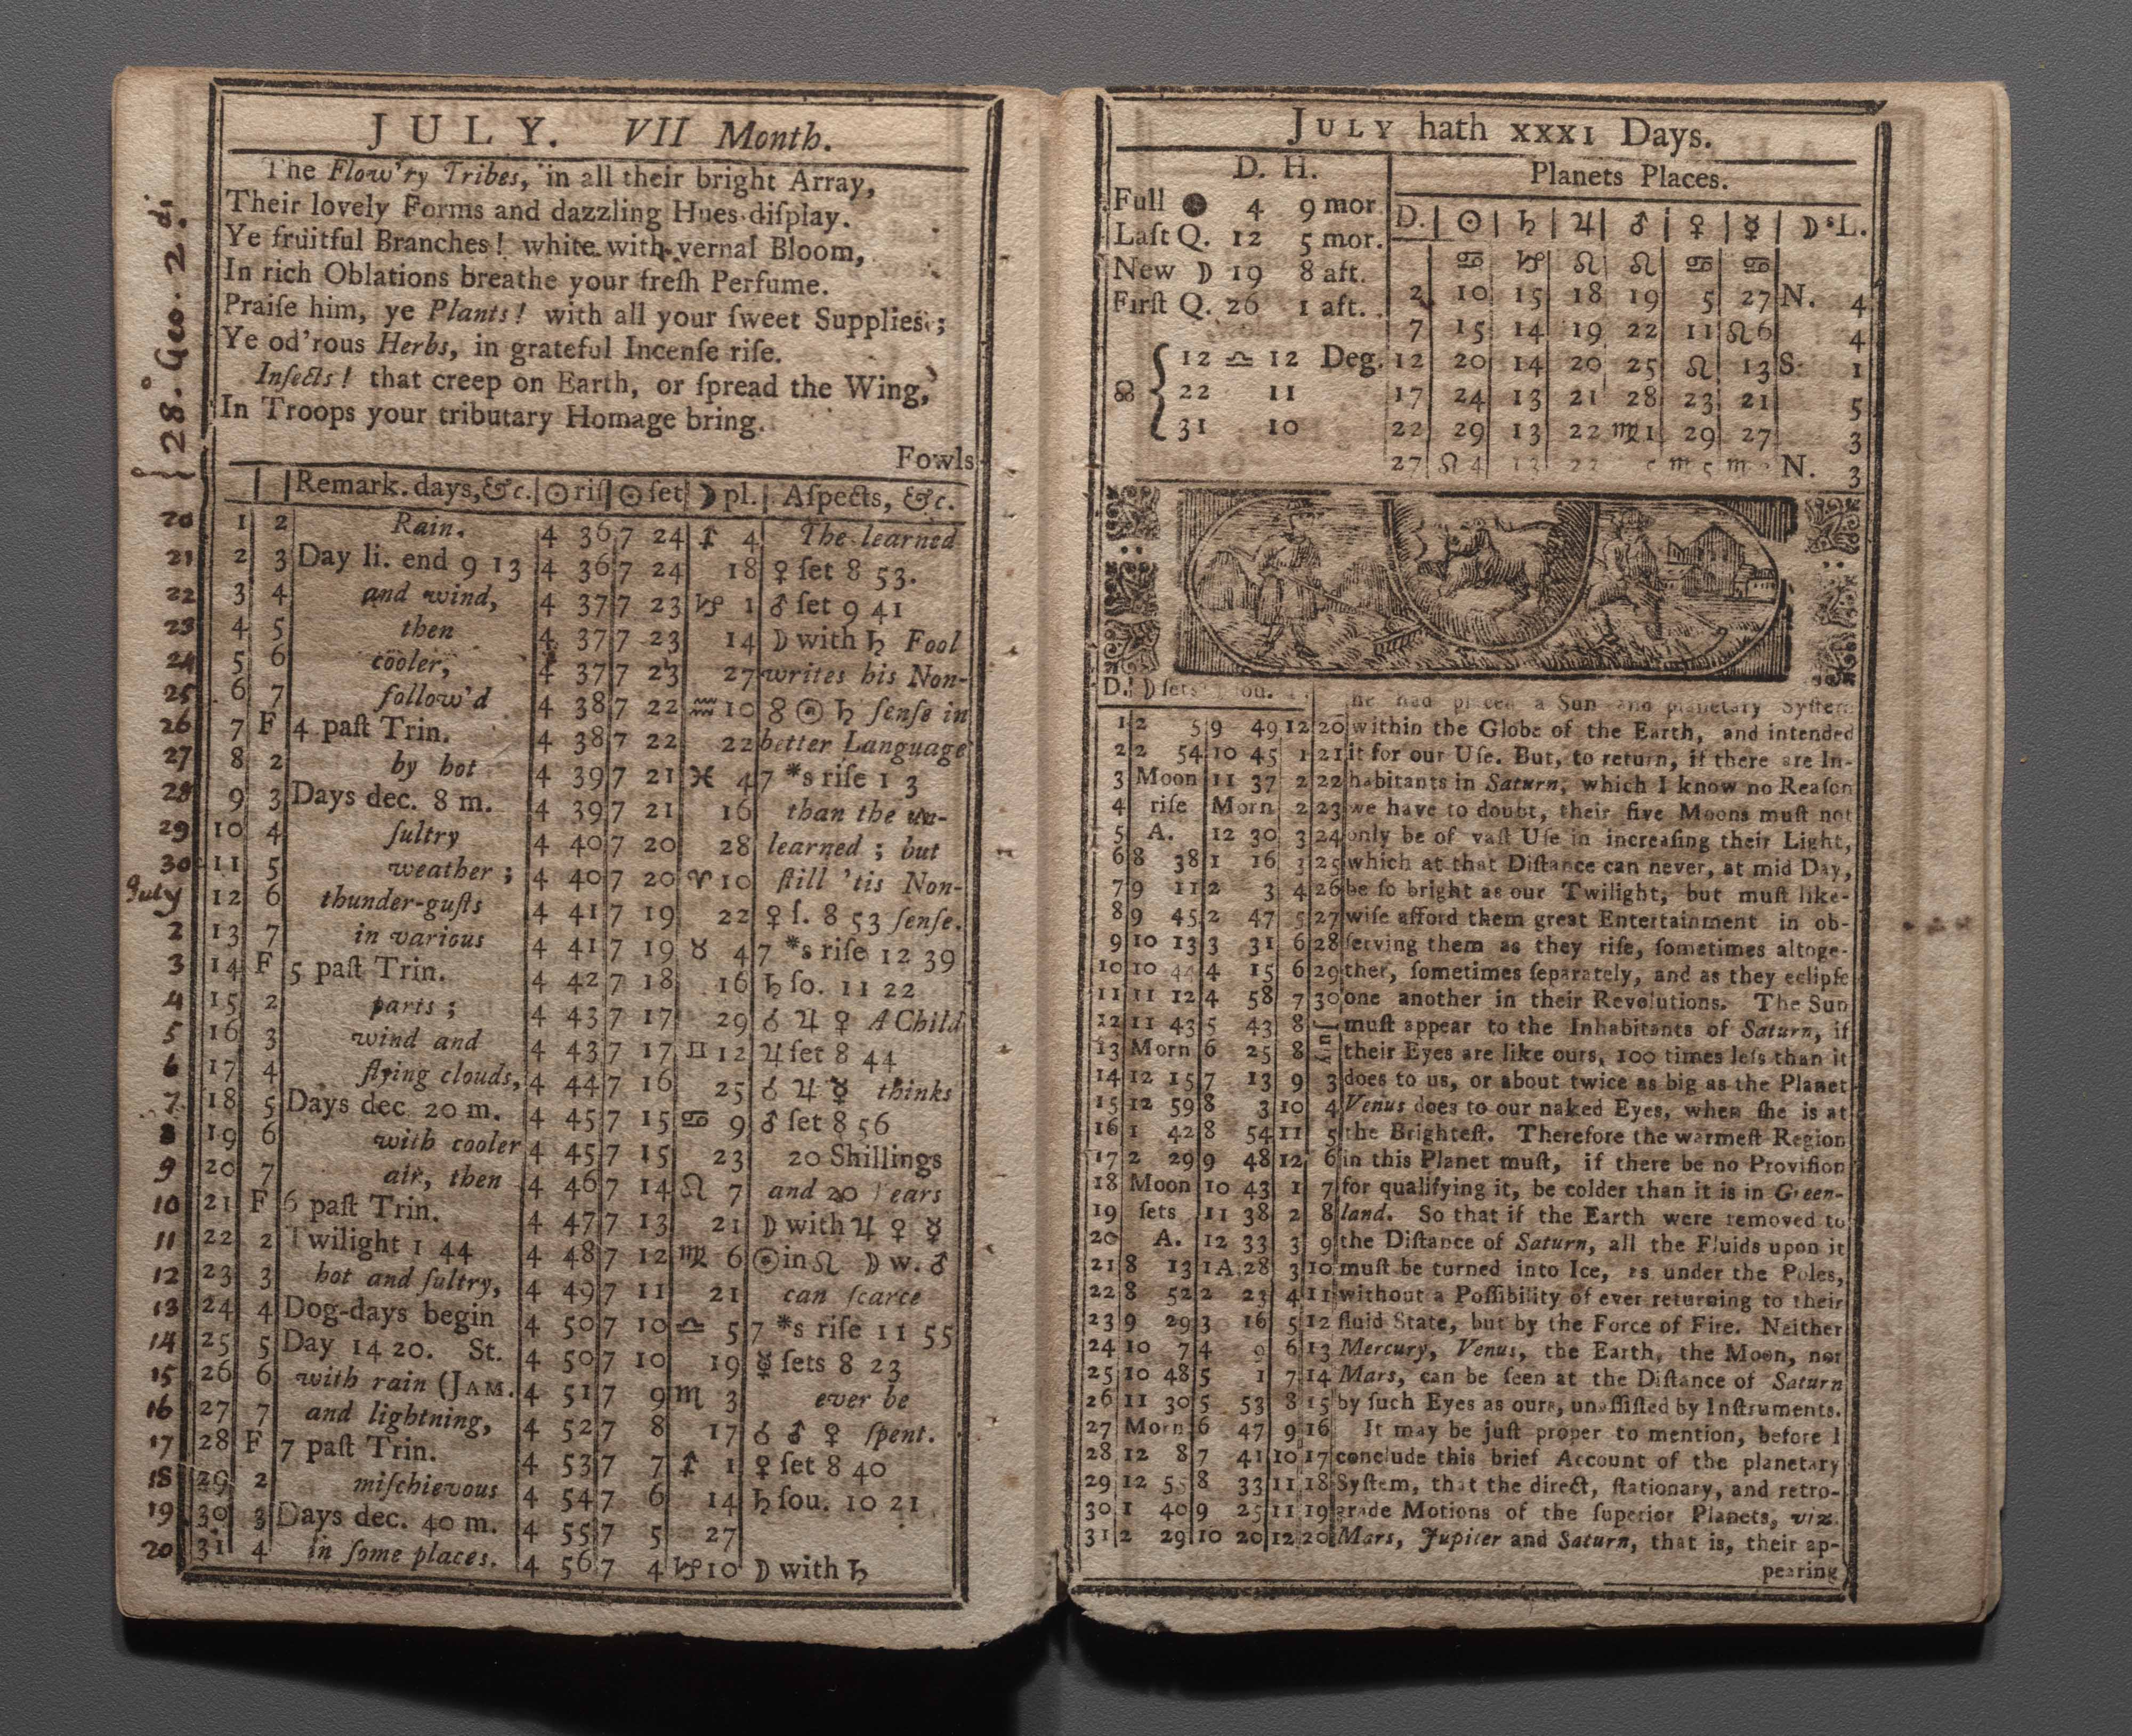 JULY. VII Month.
The Flow'ry Tribes, in all their bright Array,
Their lovely Forms and dazzling Hues diſplay.
Ye fruitful Branches! white with vernal Bloom,
In rich Oblations breathe your freſh Perfume.
Praiſe him, ye Plants! with all your ſweet Supplies;
Ye od'rous Herbs, in grateful Incenſe riſe.
Inſects! that creep on Earth, or ſpread the Wing,
In Troops your tributary Homage bring.
Fowls
28. Geo. 2.di
Remark. days, &c. ☉ riſ ☉ ſet ☽ pl. Aſpects, &c.
20 1 2 Rain. 4 36 7 24 ♐ 4 The learned
21 2 3 Day li. end 9 13 4 36 7 24 18 ♀ ſet 8 53.
22 3 4 and wind, 4 37 7 23 ♑ 1 ♂ ſet 9 41
23 4 5 then 4 37 7 23 14 ☽ with ♄ Fool
24 5 6 cooler, 4 37 7 23 27 writes his Non-
25 6 7 follow'd 4 38 7 22 ♒ 10 ☍ ☉ ♄ ſenſe in
26 7 F 4 paſt Trin. 4 38 7 22 22 better Language
27 8 2 by hot 4 39 7 21 ♓ 4 7 *s riſe 1 3
28 9 3 Days dec. 8 m. 4 39 7 21 16 than the un-
29 10 4 ſultry 4 40 7 20 28 learned; but
30 11 5 weather; 4 40 7 20 ♈ 10 ſtill 'tis Non-
July 12 6 thunder-guſts 4 41 7 19 22 ♀ ſ. 8 53 ſenſe.
2 13 7 in various 4 41 7 19 ♉ 4 7 *s riſe 12 39
3 14 F 5 paſt Trin. 4 42 7 18 16 ♄ ſo. 11 22
4 15 2 parts; 4 43 7 17 29 ☌ ♃ ♀ A Child
5 16 3 wind and 4 43 7 17 ♊ 12 ♃ ſet 8 44
6 17 4 flying clouds, 4 44 7 16 25 ☌ ♃ ☿ thinks
7 18 5 Days dec. 20 m. 4 45 7 15 ♋ 9 ♂ ſet 8 56
8 19 6 with cooler 4 45 7 15 23 20 Shillings
9 20 7 air, then 4 46 7 14 ♌ 7 and 20 Years
10 21 F 6 paſt Trin. 4 47 7 13 21 ☽ with ♃ ♀ ☿
11 22 2 Twilight 1 44 4 48 7 12 ♍ 6 ☉ in ♌ ☽ w. ♂
12 23 3 hot and ſultry, 4 49 7 11 21 can ſcarce
13 24 4 Dog-days begin 4 50 7 10 ♎ 5 7 *s riſe 11 55
14 25 5 Day 14 20. St. 4 50 7 10 19 ☿ ſets 8 23
15 26 6 with rain (JAM. 4 51 7 9 ♏ 3 ever be
16 27 7 and lightning, 4 52 7 8 17 ☌ ♂ ♀ ſpent.
17 28 F 7 paſt Trin. 4 53 7 7 ♐ 1 ♀ ſet 8 40
18 29 2 miſchievous 4 54 7 6 14 ♄ ſou. 10 21
19 30 3 Days dec. 40 m. 4 55 7 5 27
20 31 4 in ſome places. 4 56 7 4 ♑ 10 ☽ with ♄
JULY hath XXXI Days.
D. H.
Full ● 4 9 mor.
Laſt Q. 12 5 mor.
New ☽ 19 8 aft.
Firſt Q. 26 1 aft.
☊ { 12 ♎ 12 Deg.
22 11
31 10
Planets Places.
D. ☉ ♄ ♃ ♂ ♀ ☿ ☽s L.
♋ ♑ ♌ ♌ ♋ ♋
2 10 15 18 19 5 27 N. 4
7 15 14 19 22 11 ♌ 6 4
12 20 14 20 25 ♌ 13 S. 1
17 24 13 21 28 23 21 5
22 29 13 22 ♍ 1 29 27 3
27 ♌ 4 13 22 N. 3
D. ☽ ſets ſou. he had placed a Sun and planetary Syſtem
1 2 5 9 49 12 20 within the Globe of the Earth, and intended
2 2 54 10 45 1 21 it for our Uſe. But, to return, if there are In-
3 Moon 11 37 2 22 habitants in Saturn, which I know no Reaſon
4 riſe Morn 2 23 we have to doubt, their five Moons muſt not
5 A. 12 30 3 24 only be of vaſt Uſe in increaſing their Light,
6 8 38 1 16 3 25 which at that Diſtance can never, at mid Day,
7 9 11 2 3 4 26 be ſo bright as our Twilight, but muſt like-
8 9 45 2 47 5 27 wiſe afford them great Entertainment in ob-
9 10 13 3 31 6 28 ſerving them as they riſe, ſometimes altoge-
10 10 44 4 15 6 29 ther, ſometimes ſeparately, and as they eclipſe
11 11 12 4 58 7 30 one another in their Revolutions. The Sun
12 11 43 5 43 8 July muſt appear to the Inhabitants of Saturn, if
13 Morn 6 25 8 their Eyes are like ours, 100 times leſs than it
14 12 15 7 13 9 3 does to us, or about twice as big as the Planet
15 12 59 8 3 10 4 Venus does to our naked Eyes, when ſhe is at
16 1 42 8 54 11 5 the Brighteſt. Therefore the warmeſt Region
17 2 29 9 48 12 6 in this Planet muſt, if there be no Proviſion
18 Moon 10 43 1 7 for qualifying it, be colder than it is in Green-
19 ſets 11 38 2 8 land. So that if the Earth were removed to
20 A. 12 33 3 9 the Diſtance of Saturn, all the Fluids upon it
21 8 13 1A 28 3 10 muſt be turned into Ice, as under the Poles,
22 8 52 2 23 4 11 without a Poſſibility of ever returning to their
23 9 29 3 16 5 12 fluid State, but by the Force of Fire. Neither
24 10 7 4 9 6 13 Mercury, Venus, the Earth, the Moon, nor
25 10 48 5 1 7 14 Mars, can be ſeen at the Diſtance of Saturn
26 11 30 5 53 8 15 by ſuch Eyes as ours, unaſſiſted by Inſtruments.
27 Morn 6 47 9 16 It may be juſt proper to mention, before I
28 12 8 7 41 10 17 conclude this brief Account of the planetary
29 12 55 8 33 11 18 Syſtem, that the direct, ſtationary, and retro-
30 1 40 9 25 11 19 grade Motions of the ſuperior Planets, viz.
31 2 29 10 20 12 20 Mars, Jupiter and Saturn, that is, their ap-
pearing